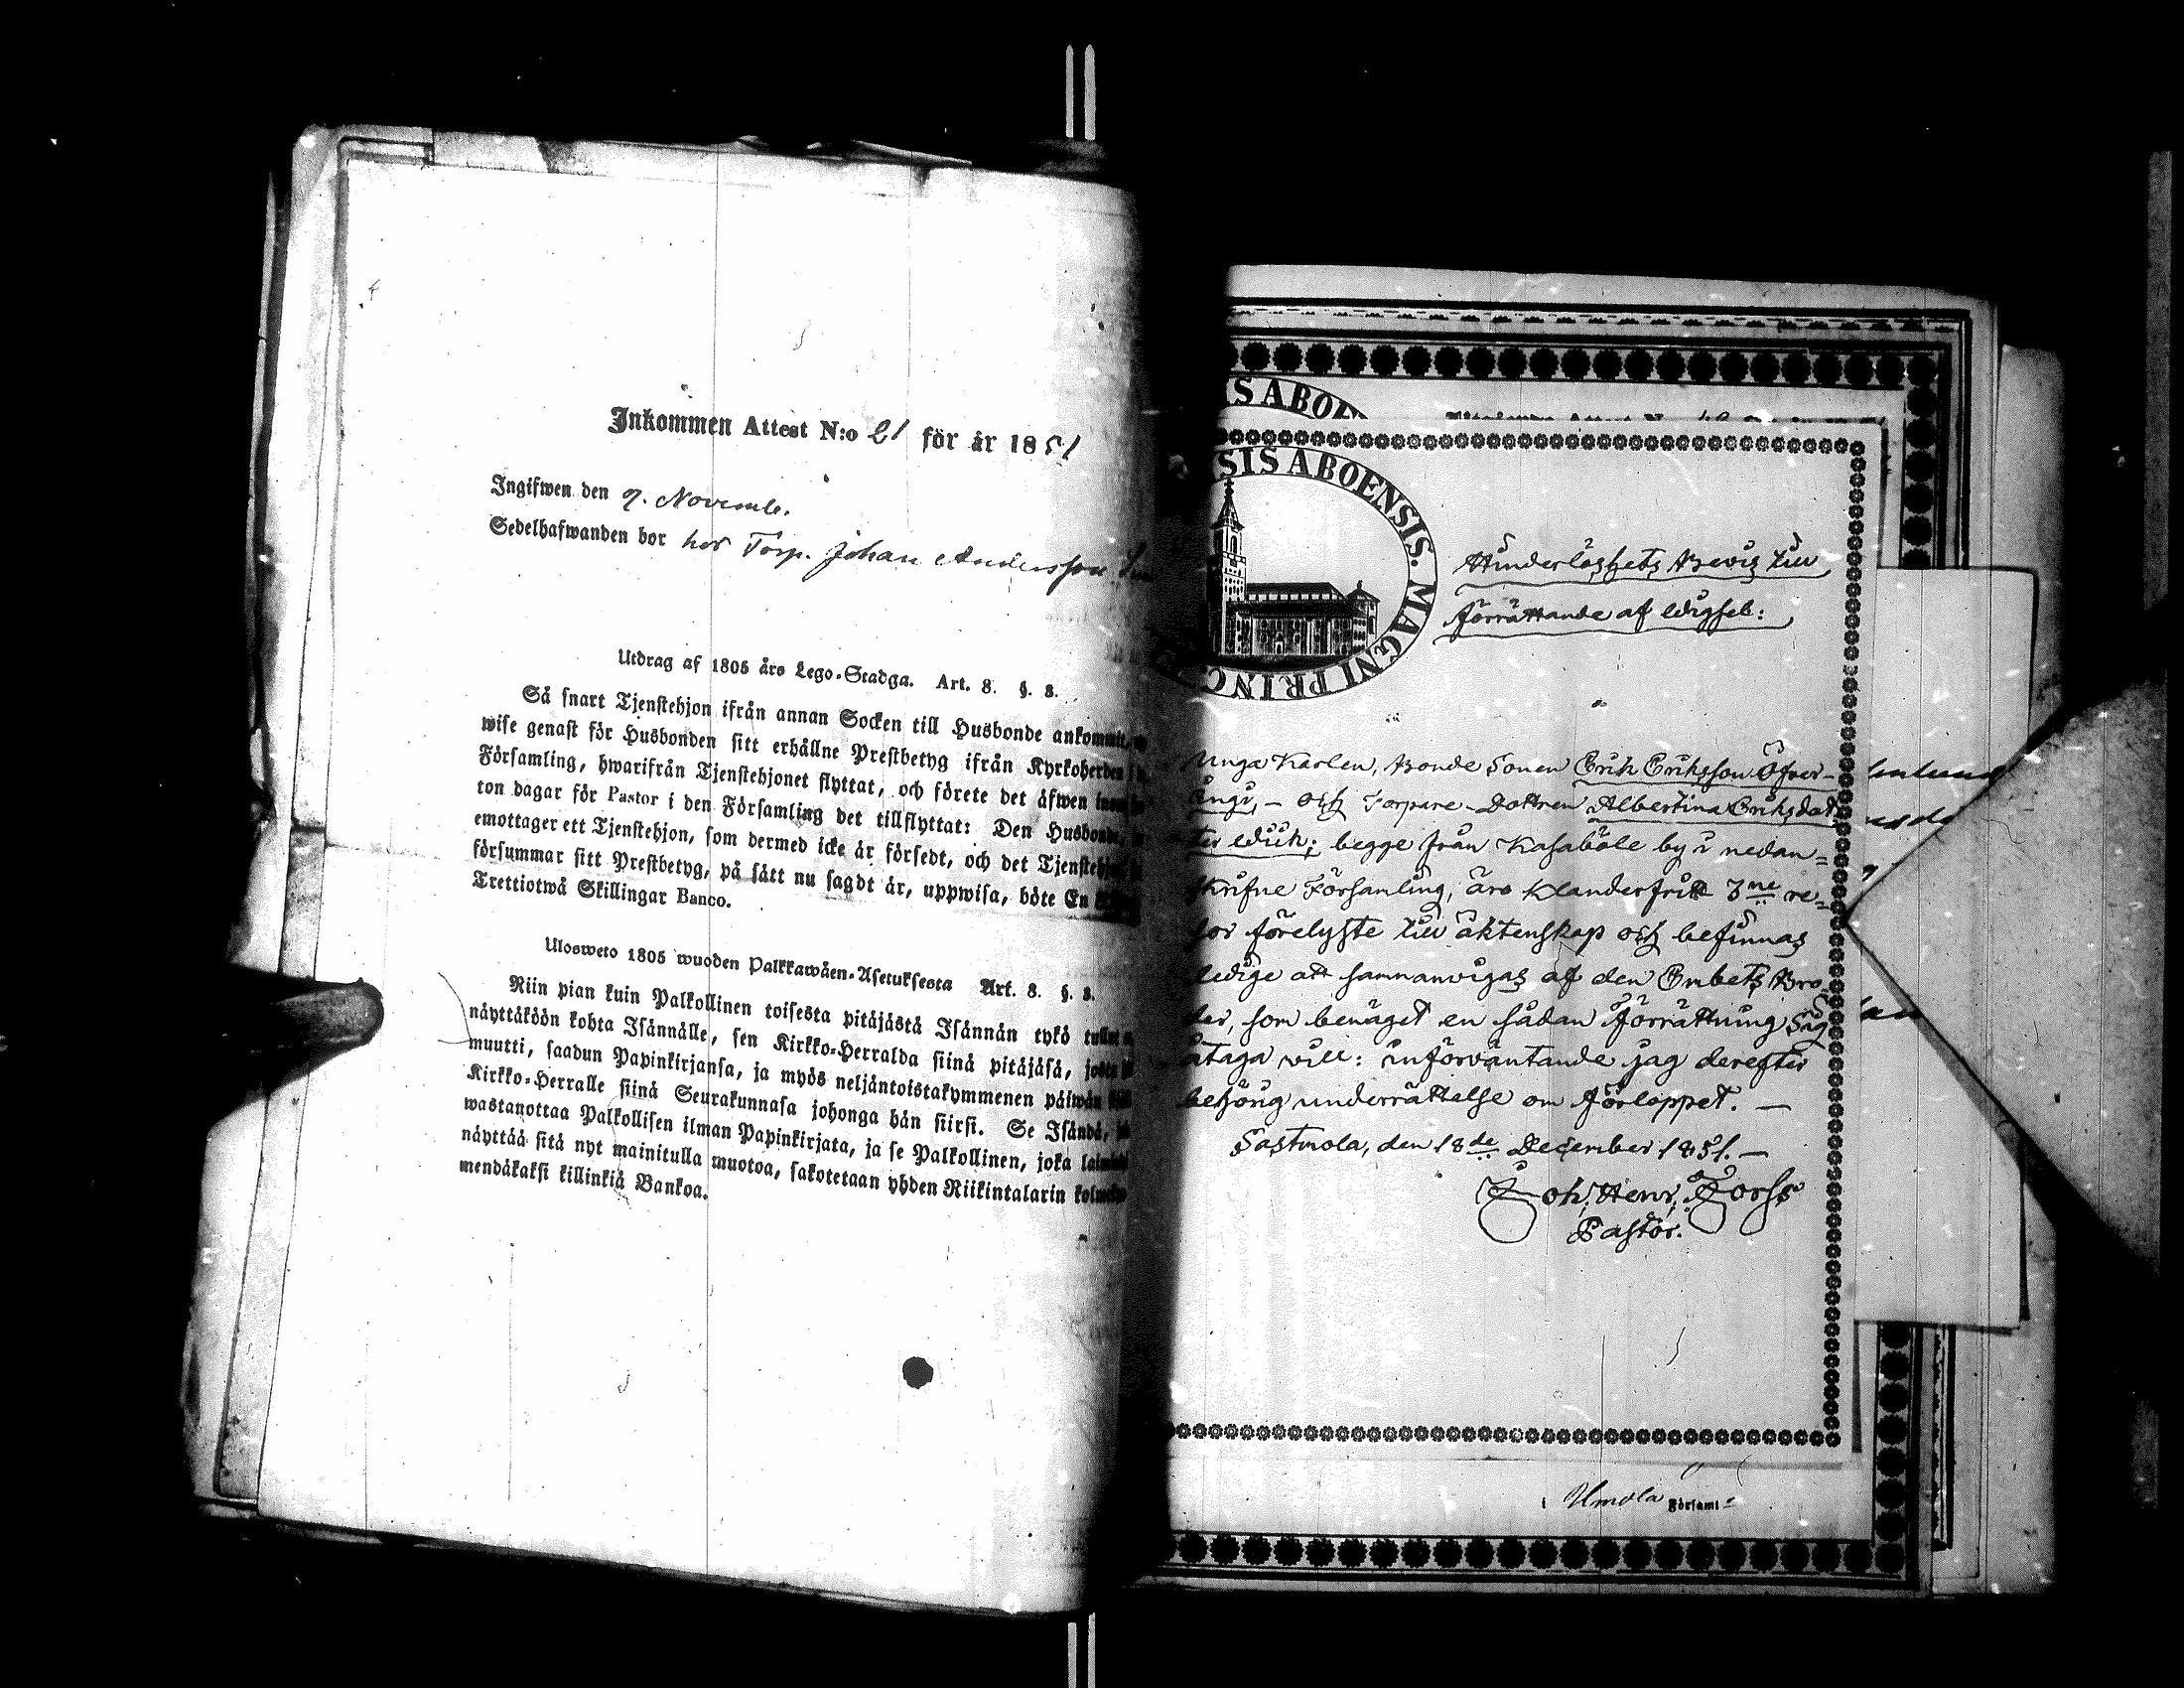 Inkommen Attest N:o 21 för år 1851
Ingifwen den 9. Novemb.
Sedelhafwanden bor hos Torp. Johan Andersson
Utdrag af 1805 års Lego-Stadga. Art. 8. §. 8.
Så snart Tjenstehjon ifrån annan Socken till Husbonde ankommit,
wise genast för Husbonden sitt erhållne Prestbetyg ifrån Kyrkoherden
Församling, hwarifrån Tjenstehjonet flyttat, och förete det äfwen inom
ton dagar för Pastor i den Församling det tillflyttat: Den Husbonde,
emottager ett Tjenstehjon, som dermed icke är försedt, och det Tjenstehjon
försummar sitt Prestbetyg, på sätt nu sagdt är, uppwisa, böte En
Trettiotwå Skillingar Banco.
Ulosweto 1805 wuoden Palkkawäen-Asetuksesta Art. 8. §. 8.
Niin pian kuin Palkollinen toisesta pitäjästä Isännän tykö tullut
näyttäköön kohta Isännälle, sen Kirkko-Herralda siinä pitäjäsä, josta
muutti, saadun Papinkirjansa, ja myös neljäntoistakymmenen päiwän
Kirkko-Herralle siinä Seurakunnasa johonga hän siirsi. Se Isändä,
wastanottaa Palkollisen ilman Papinkirjata, ja se Palkollinen, joka
näyttää sitä nyt mainitulla muotoa, sakotetaan yhden Riikintalarin
mendäkaksi killinkiä Bankoa.
SIS ABOENSIS. MAGNI PRINC
Hinderlöshets Bevis till
förrättande af Wigsel:
Unga Karlen, Bonde Sonen Erik Eriksson Öfver-
ängi, - och Torpare-Dottren Albertina Eriksdot
ter Wiik; begge från Kasaböle by i nedan=
skrifne Församling, äro klanderfritt 3ne re=
sor förelyste till äktenskap och befinnas
ledige att sammanvigas af den Embets Bro,
der, som benäget en sådan förrättning Sig
åtaga vill: införväntande jag derefter
behörig underrättelse om förloppet. —
Sastmola, den 18de December 1851. —
Joh. Henr. Forss
Pastor.
i Ulmola Församl